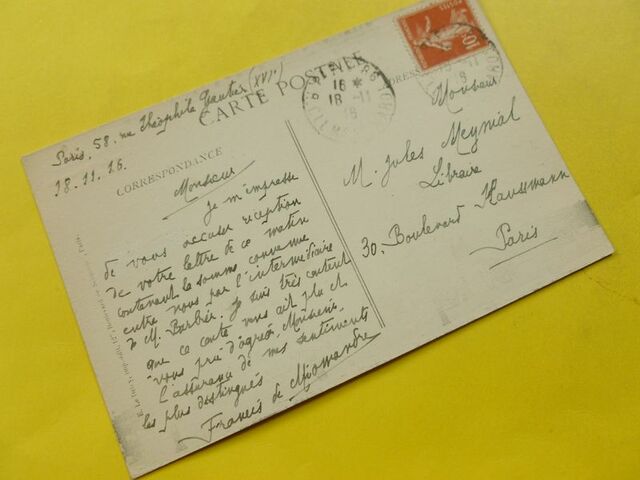 CARTE POSTALE
CORRESPONDANCE
Paris, 58, rue Théophile Gautier (XVIe)
18.11.16.
Monsieur
Je m'empresse
de vous accuser réception
de votre lettre de ce matin
contenant la somme convenue
entre nous par l'intermédiaire
de M. Barbier. Je suis très content
que ce conte vous ait plu et
vous prie d'agréer, Monsieur,
l'assurance de mes sentiments
les plus distingués
Francis de Miomandre
10
16
18 -11
Monsieur
M. Jules Meynial
Libraire
30, Boulevard Haussmann
Paris